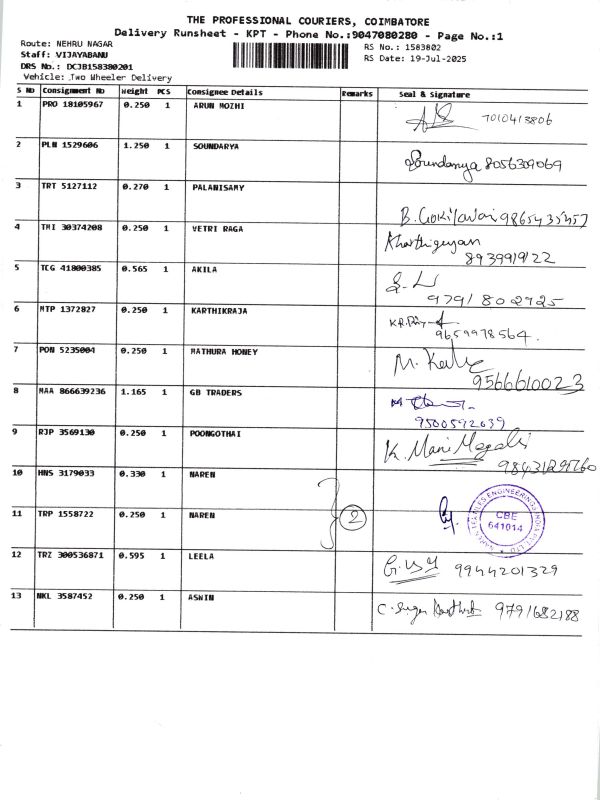 THE PROFESSIONAL COURIERS, COIMBATORE
Delivery Runsheet - KPT - Phone No.:9047080280 - Page No.:1
Route: NEHRU NAGAR
RS No.: 1583802
Staff: VIJAYABANU
RS Date: 19-Jul-2025
DRS No.: DCJB158380201
Vehicle: Two Wheeler Delivery
S No Consignment No Weight PCS Consignee Details Remarks Seal & Signature
1 PRO 18105967 0.250 1 ARUN MOZHI 7010413806
2 PLN 1529606 1.250 1 SOUNDARYA Soundarya 8056309069
3 TRT 5127112 0.270 1 PALANISAMY
4 TMI 30374208 0.250 1 VETRI RAGA
8939919122
5 TCG 41800385 0.565 1 AKILA
9791 802925
6 MTP 1372827 0.250 1 KARTHIKRAJA
9659978564
7 PON 5235004 0.250 1 MATHURA HONEY
9566610023
8 MAA 866639236 1.165 1 GB TRADERS
9500592639
9 RJP 3569130 0.250 1 POONGOTHAI K. Mani Megalai
10 HNS 3179033 0.330 1 NAREN
11 TRP 1558722 0.250 1 NAREN 2 CBE 641014
12 TRZ 300536871 0.595 1 LEELA 9944201329
13 NKL 3587452 0.250 1 ASWIN 9791682188